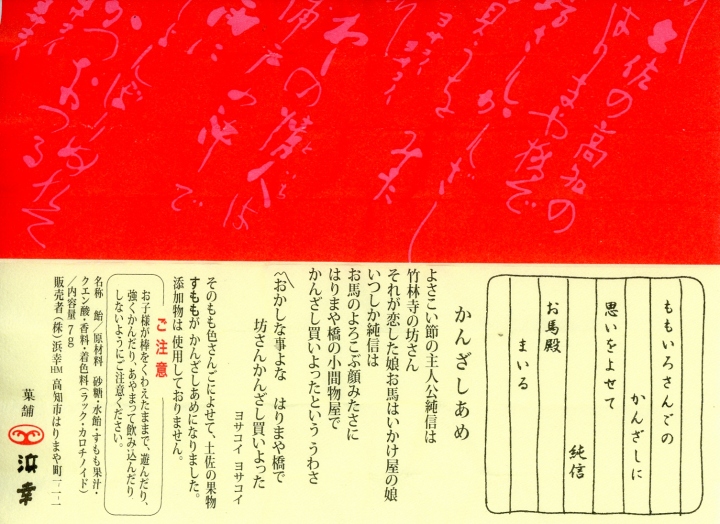 土佐の高知の
はりまや橋で
坊さんかんざし
買うをみた
ヨサコイ
ヨサコイ
ももいろさんごの
かんざしに
思いをよせて
純信
お馬殿
まいる
かんざしあめ
よさこい節の主人公純信は
竹林寺の坊さん
それが恋した娘お馬はいかけ屋の娘
いつしか純信は
お馬のよろこぶ顔みたさに
はりまや橋の小間物屋で
かんざし買いよったという うわさ
〽おかしな事よな はりまや橋で
坊さんかんざし買いよった
ヨサコイ ヨサコイ
そのもも色さんごによせて、土佐の果物
すももが かんざしあめになりました。
添加物は 使用しておりません。
ご注意
お子様が棒をくわえたままで、遊んだり、
強くかんだり、あやまって飲み込んだり
しないようにご注意ください。
名称 飴/原材料 砂糖・水飴・すもも果汁・
クエン酸・香料・着色料(ラック・カロチノイド)
/内容量 7g
販売者(株)浜幸HM 高知市はりまや町一-一-一
菓舗
浜幸